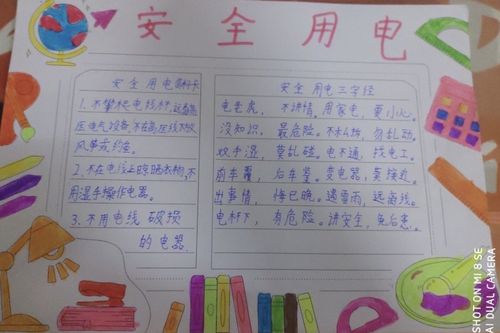 安全用电
安全用电常识卡
1. 不攀爬电线杆,远离高
压电气设备,不在高压线下放
风筝或钓鱼。
2. 不在电线上晾晒衣物,不
用湿手操作电器。
3. 不用电线破损
的电器。
安全用电三字经
电老虎, 不讲情, 用家电, 要小心。
没知识, 最危险。不私拆, 勿乱动。
双手湿, 莫乱碰。电不通, 找电工。
前车覆, 后车鉴。变电器, 莫接近。
出事情, 悔已晚。遇雷雨, 远离线。
电杆下, 有危险。讲安全, 免后患。
SHOT ON MI 8 SE
AI DUAL CAMERA